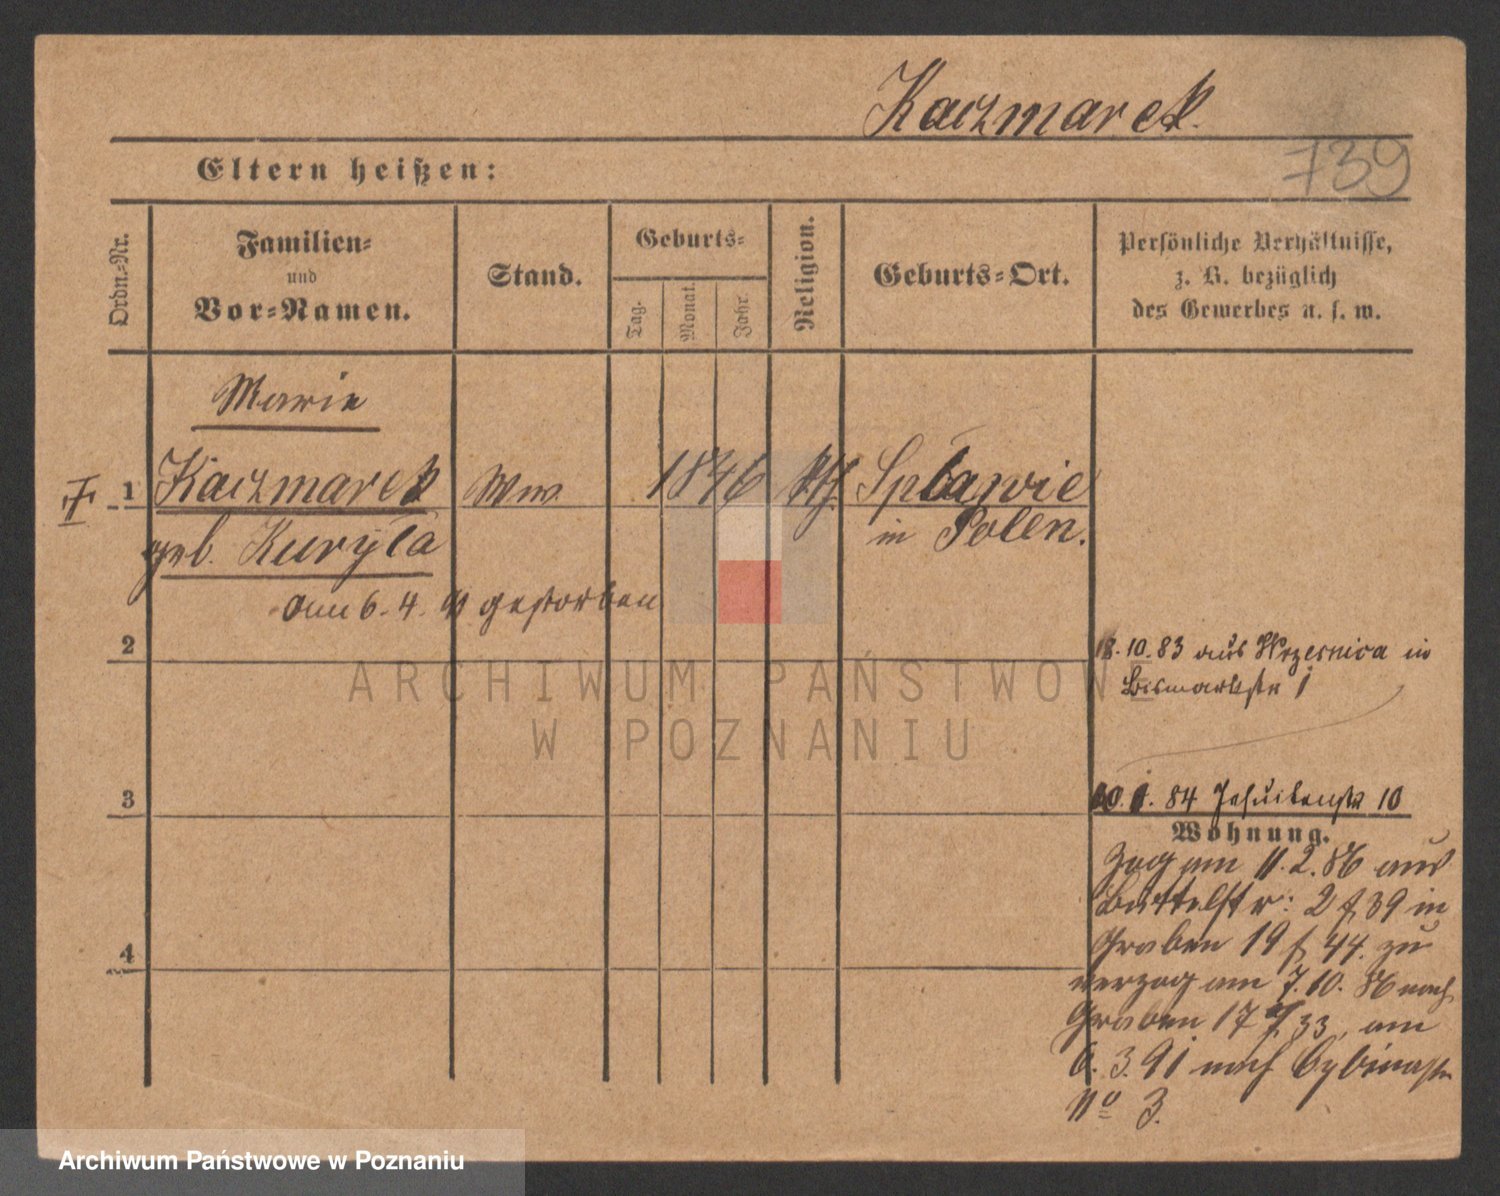 Kaczmarek.
739
Eltern heißen:
Ordn.-Nr.
Familien-
und
Vor-Namen.
Stand.
Geburts-
Tag.
Monat.
Jahr
Religion.
Geburts-Ort.
Persönliche Verhältnisse,
z. B. bezüglich
des Gewerbes u. s. w.
Marie
1 Kaczmarek Ww. 1846 kth Spławie
geb. Kuryła in Polen.
am 6. 4. 91 gestorben
2
18.10.83 aus Wrzesnica in
Bismarkstr 1
ARCHIWUM PAŃSTWOWE
W POZNANIU
3
84 Jesuitenstr 10
Wohnung.
Zog am 11.2.86 aus
Büttelstr: 2 f 39 in
Graben 19 f 44. zu
4
verzog am 7.10.86 nach
Graben 17 f 33, am
6.3.91 nach Cybinastr
No 3.
Archiwum Państwowe w Poznaniu